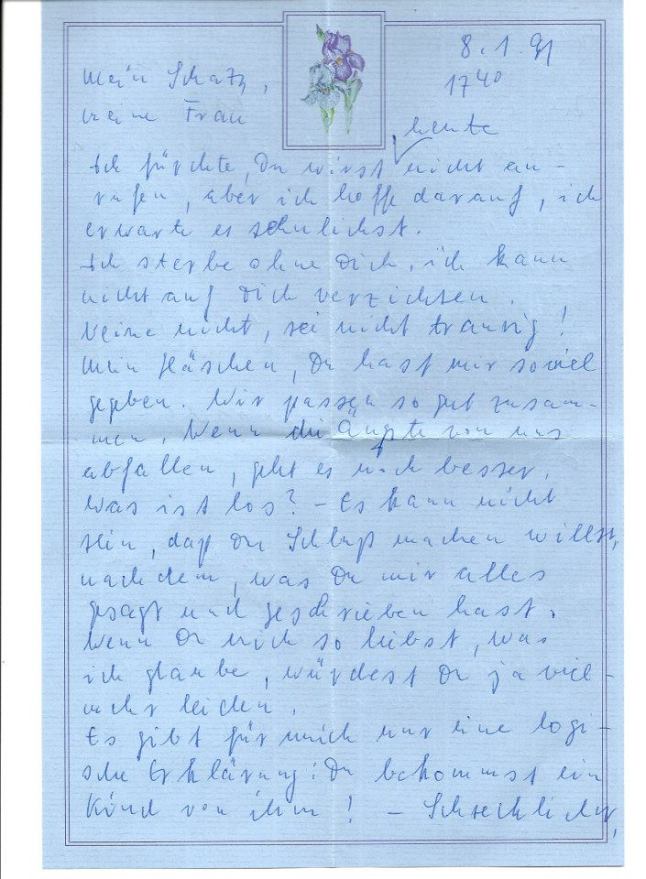 8.1.91
17⁴⁰
Mein Schatz,
meine Frau
Ich fürchte, Du wirst heute nicht an-
rufen, aber ich hoffe darauf, ich
erwarte es sehnlichst.
Ich sterbe ohne Dich, ich kann
nicht auf Dich verzichten.
Weine nicht, sei nicht traurig!
Mein Häschen, Du hast mir soviel
gegeben. Wir passen so gut zusam-
men. Wenn die Ängste von uns
abfallen, geht es noch besser.
Was ist los? – Es kann nicht
sein, daß Du Schluß machen willst,
nach dem, was Du mir alles
gesagt und geschrieben hast.
Wenn Du mich so liebst, was
ich glaube, würdest Du ja viel-
mehr leiden.
Es gibt für mich nur eine logi-
sche Erklärung: Du bekommst ein
Kind von ihm! – Schrecklich,